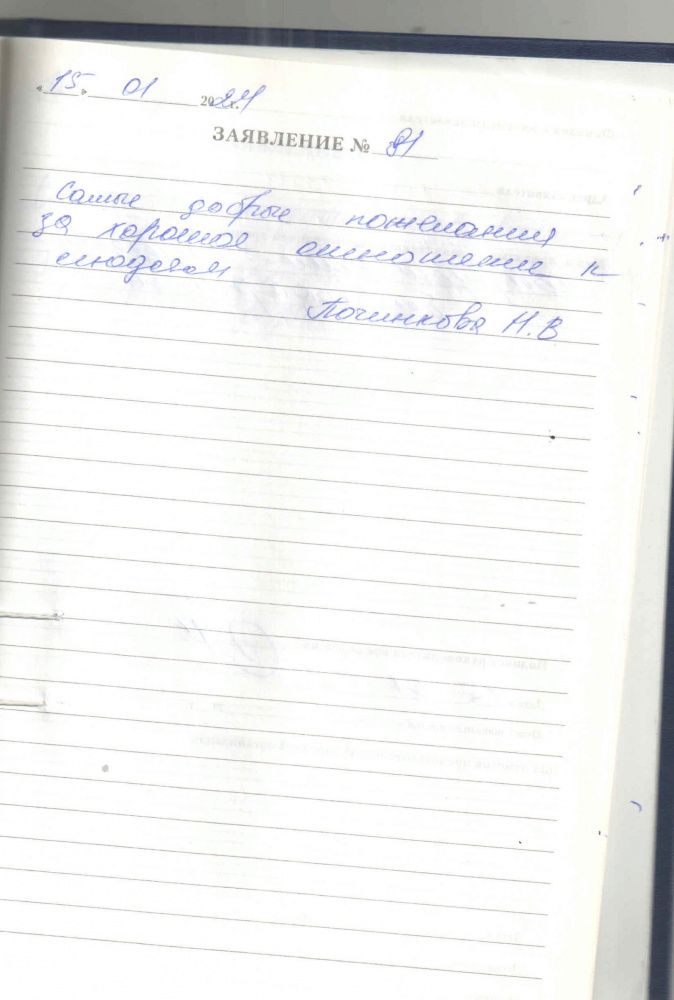 « 15 » 01 2024 г.
ЗАЯВЛЕНИЕ № 91
Самые добрые пожелания
за хорошое отношение к
людям
Починкова Н.В